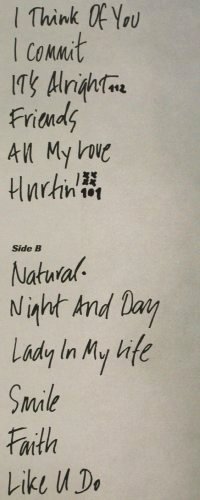 I Think Of You
I Commit
IT's Alright 112
Friends
All My Love
Hurtin' 101
Side B
Natural.
Night And Day
Lady In My Life
Smile
Faith
Like U Do